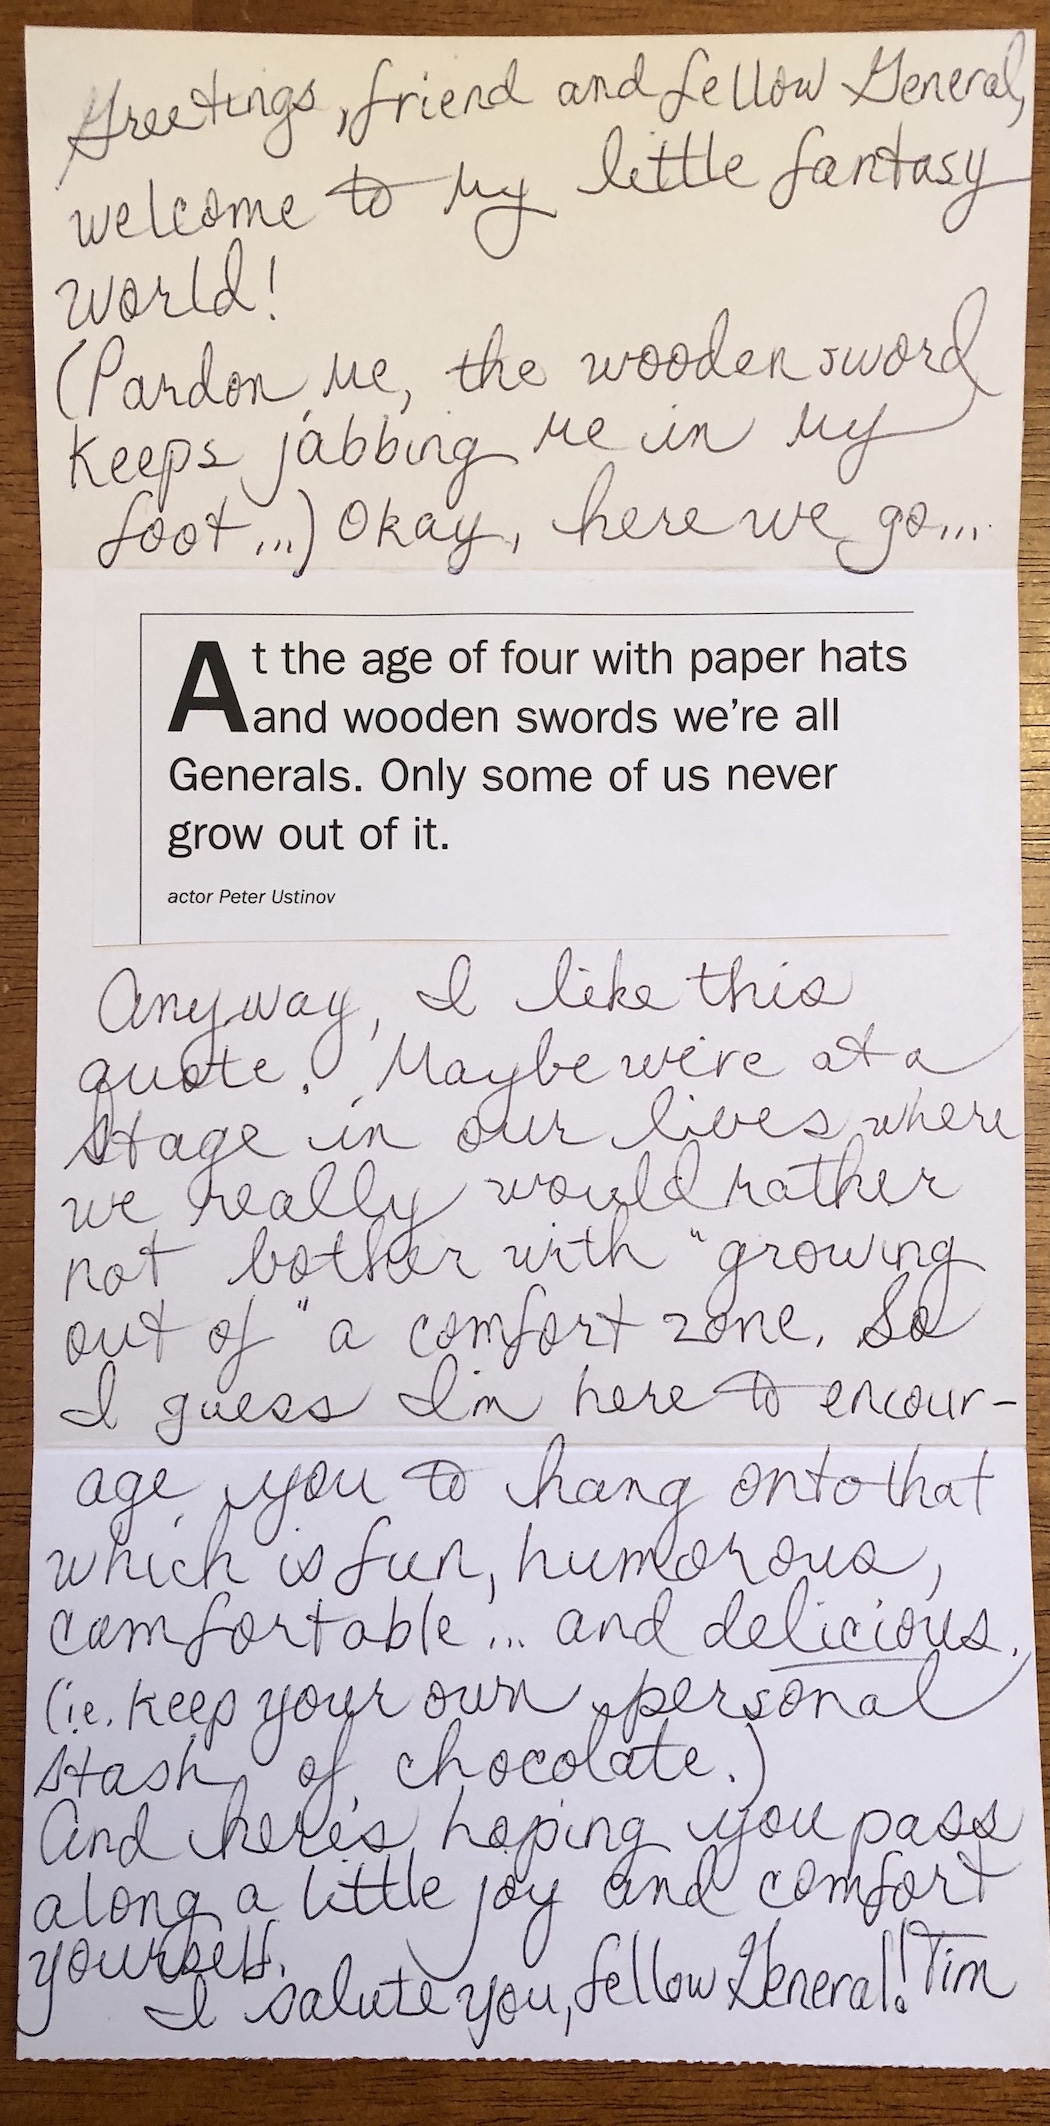 Greetings, friend and fellow General,
welcome to my little fantasy
world!
(Pardon me, the wooden sword
keeps jabbing me in my
foot...) Okay, here we go...
At the age of four with paper hats
and wooden swords we're all
Generals. Only some of us never
grow out of it.
actor Peter Ustinov
Anyway, I like this
quote. Maybe we're at a
stage in our lives where
we really would rather
not bother with "growing
out of" a comfort zone. So
I guess I'm here to encour-
age you to hang onto that
which is fun, humorous,
comfortable... and delicious.
(i.e. keep your own personal
stash of chocolate.)
And here's hoping you pass
along a little joy and comfort
yourself.
I salute you, fellow General! Tim